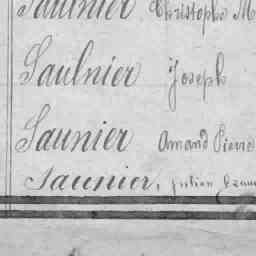 Saulnier Christophe M
Saulnier Joseph
Saunier Amand Pierre
Saunier, Julien